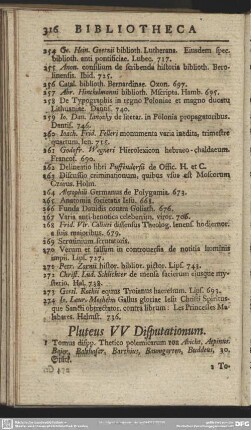 316 BIBLIOTHECA
254 Ge. Hein. Goetzii biblioth. Lutherana. Eiusdem spec.
biblioth. anti pontificiae. Lubec. 717.
255 Anon. consilium de scribenda historia biblioth. Bero-
linensis. Ibid. 725.
256 Catal. biblioth. Bernardinae. Oxon. 697.
257 Abr. Hinckelmanni biblioth. Mscripta. Hamb. 695.
258 De Typographiis in regno Poloniae et magno ducatu
Lithuaniae. Dantis. 740.
259 Io. Dan. de iocetar. in Polonia propagatoribus.
Dantis. 746.
260 Ioach. Frid. Felleri monumenta varia inedita, trimestre
quartum. Ien. 715.
261 Godofr. Wegneri Hierolexicon hebraeo-chaldaeum.
Francof. 690.
262 Delineatio libri Puffendorfii de Offic. H. et C.
263 Discussio criminationum, quibus usus est Moscorum
Czarus. Holm.
264 Germanus de Polygamia. 673.
265 Anatomia societatis Iesu. 668.
266 Funda Dauidis contra Goliath. 676.
267 Varia anti-henotica celebriorum, viror. 706.
268 Frid. Vlr. Calixti defensius Theolog. Ienens. hodiernor.
a suis maioribus. 679.
269 Scrutinium
270 Verum et falsum in controuersia de notitia luminis
impii. Lips. 727.
271 Petr. Zornii histor. biblior. pictor. Lips. 743.
272 Christ. Lud. Schlichter de mensa facierum eiusque my-
sterio. Hal. 738.
273 Gerh. equus Troianus haereticus. Lips. 693.
274 Io. Laur. Moshem Gallus gloriae Iesu Christi Spiritus-
que Sancti obtrectator. contra librum: Les Princesses Ma-
labares. Helmst. 736.
Pluteus VV Disputationum.
1 Tomus dispp. Thetico polemicarum Aepinus.
Baier, Balthasar, Barthius, Baumgarten, Buddeus, 10.
2 To-